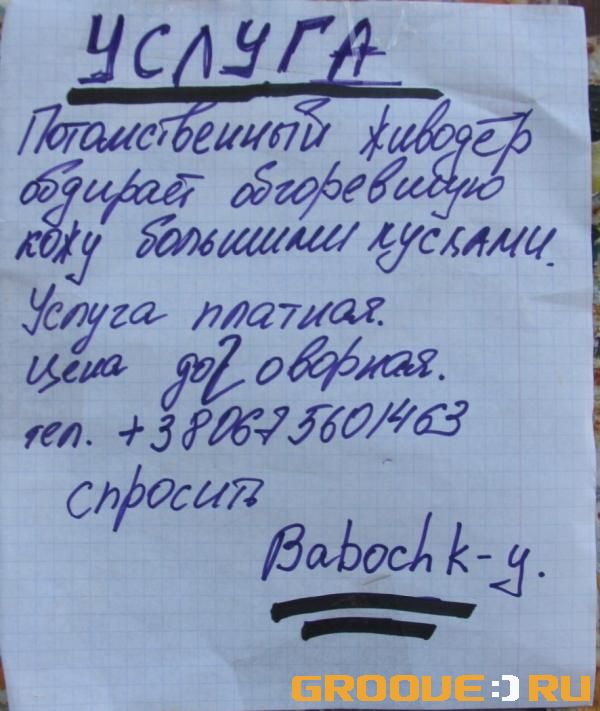 УСЛУГА
Потомственный живодёр
обдирает обгоревшую
кожу большими кусками.
Услуга платная.
Цена договорная.
тел. +380675601463
спросить
Babochk-y.
GROOVE:)RU